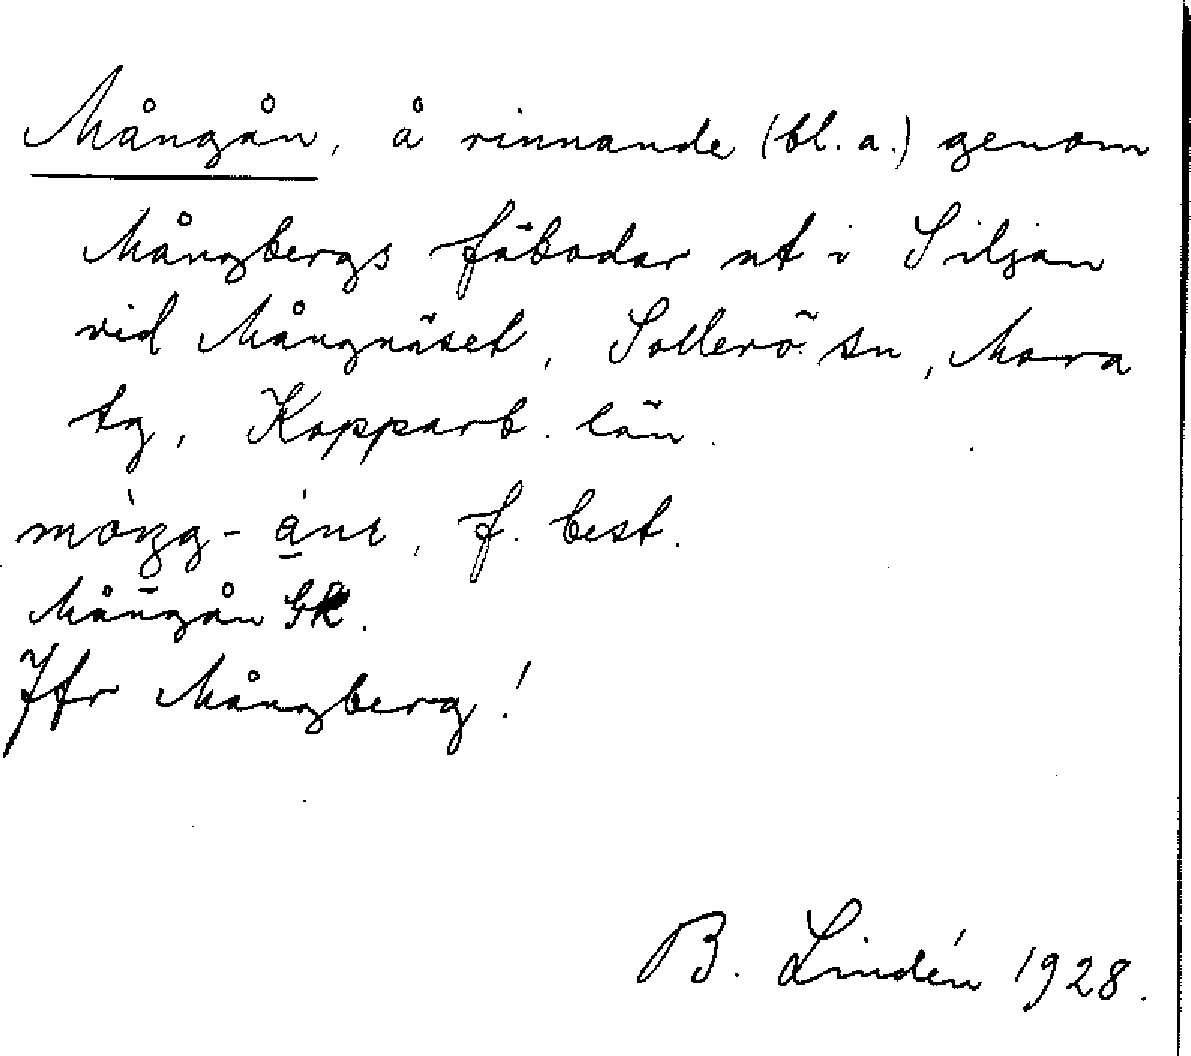 Mångån, å rinnande (bl. a.) genom
Mångbergs fäbodar ut i Siljan
vid Mångnäset, Sollerö sn, Mora
tg, Kopparb. län.
f. best.
Mångån GK.
Jfr Mångberg!
B. Lindén 1928.